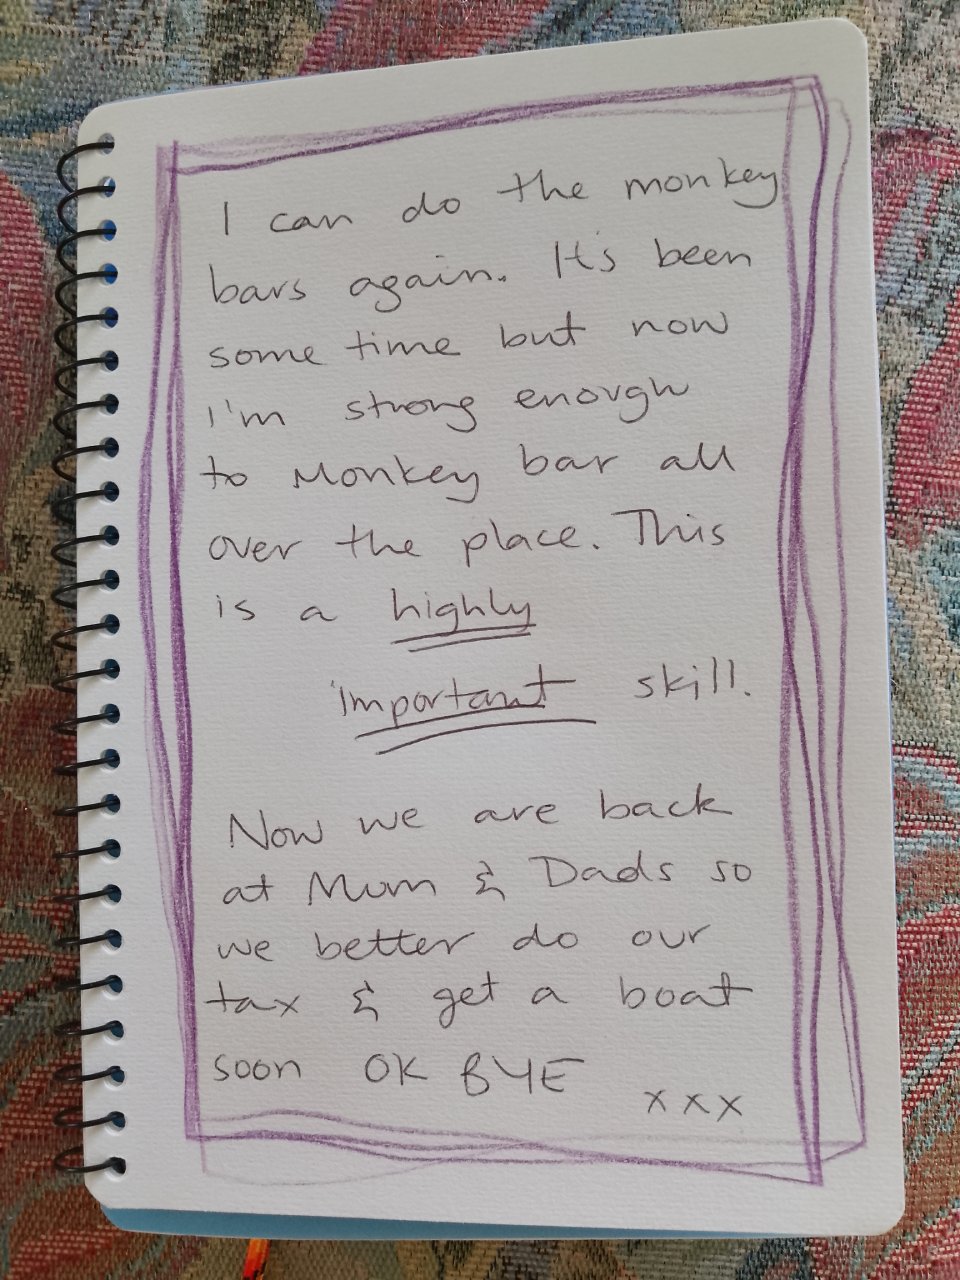 I can do the monkey
bars again. It's been
some time but now
I'm strong enough
to Monkey bar all
over the place. This
is a highly
important skill.
Now we are back
at Mum & Dads so
we better do our
tax & get a boat
soon OK BYE
xxx